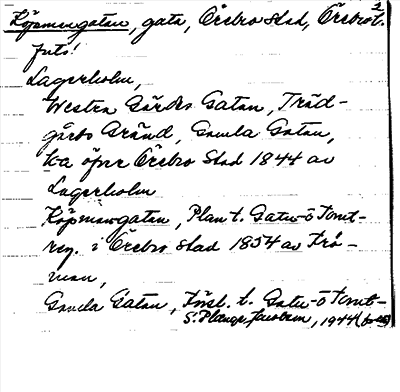 2
Köpmangatan, gata, Örebro stad, Örebro t.
forts!
Lagerholm,
Westra Gärdes Gatan, Träd-
gårds Gränd, Gamla Gatan,
ka öfver Örebro Stad 1844 av
Lagerholm
Köpmangatan, Plan t. Gatu- o Tomt-
reg. i Örebro stad 1854 av Frö-
man,
Gamla Gatan, Försl. t. Gatu- o Tomt-
S. Jacobson, 1944